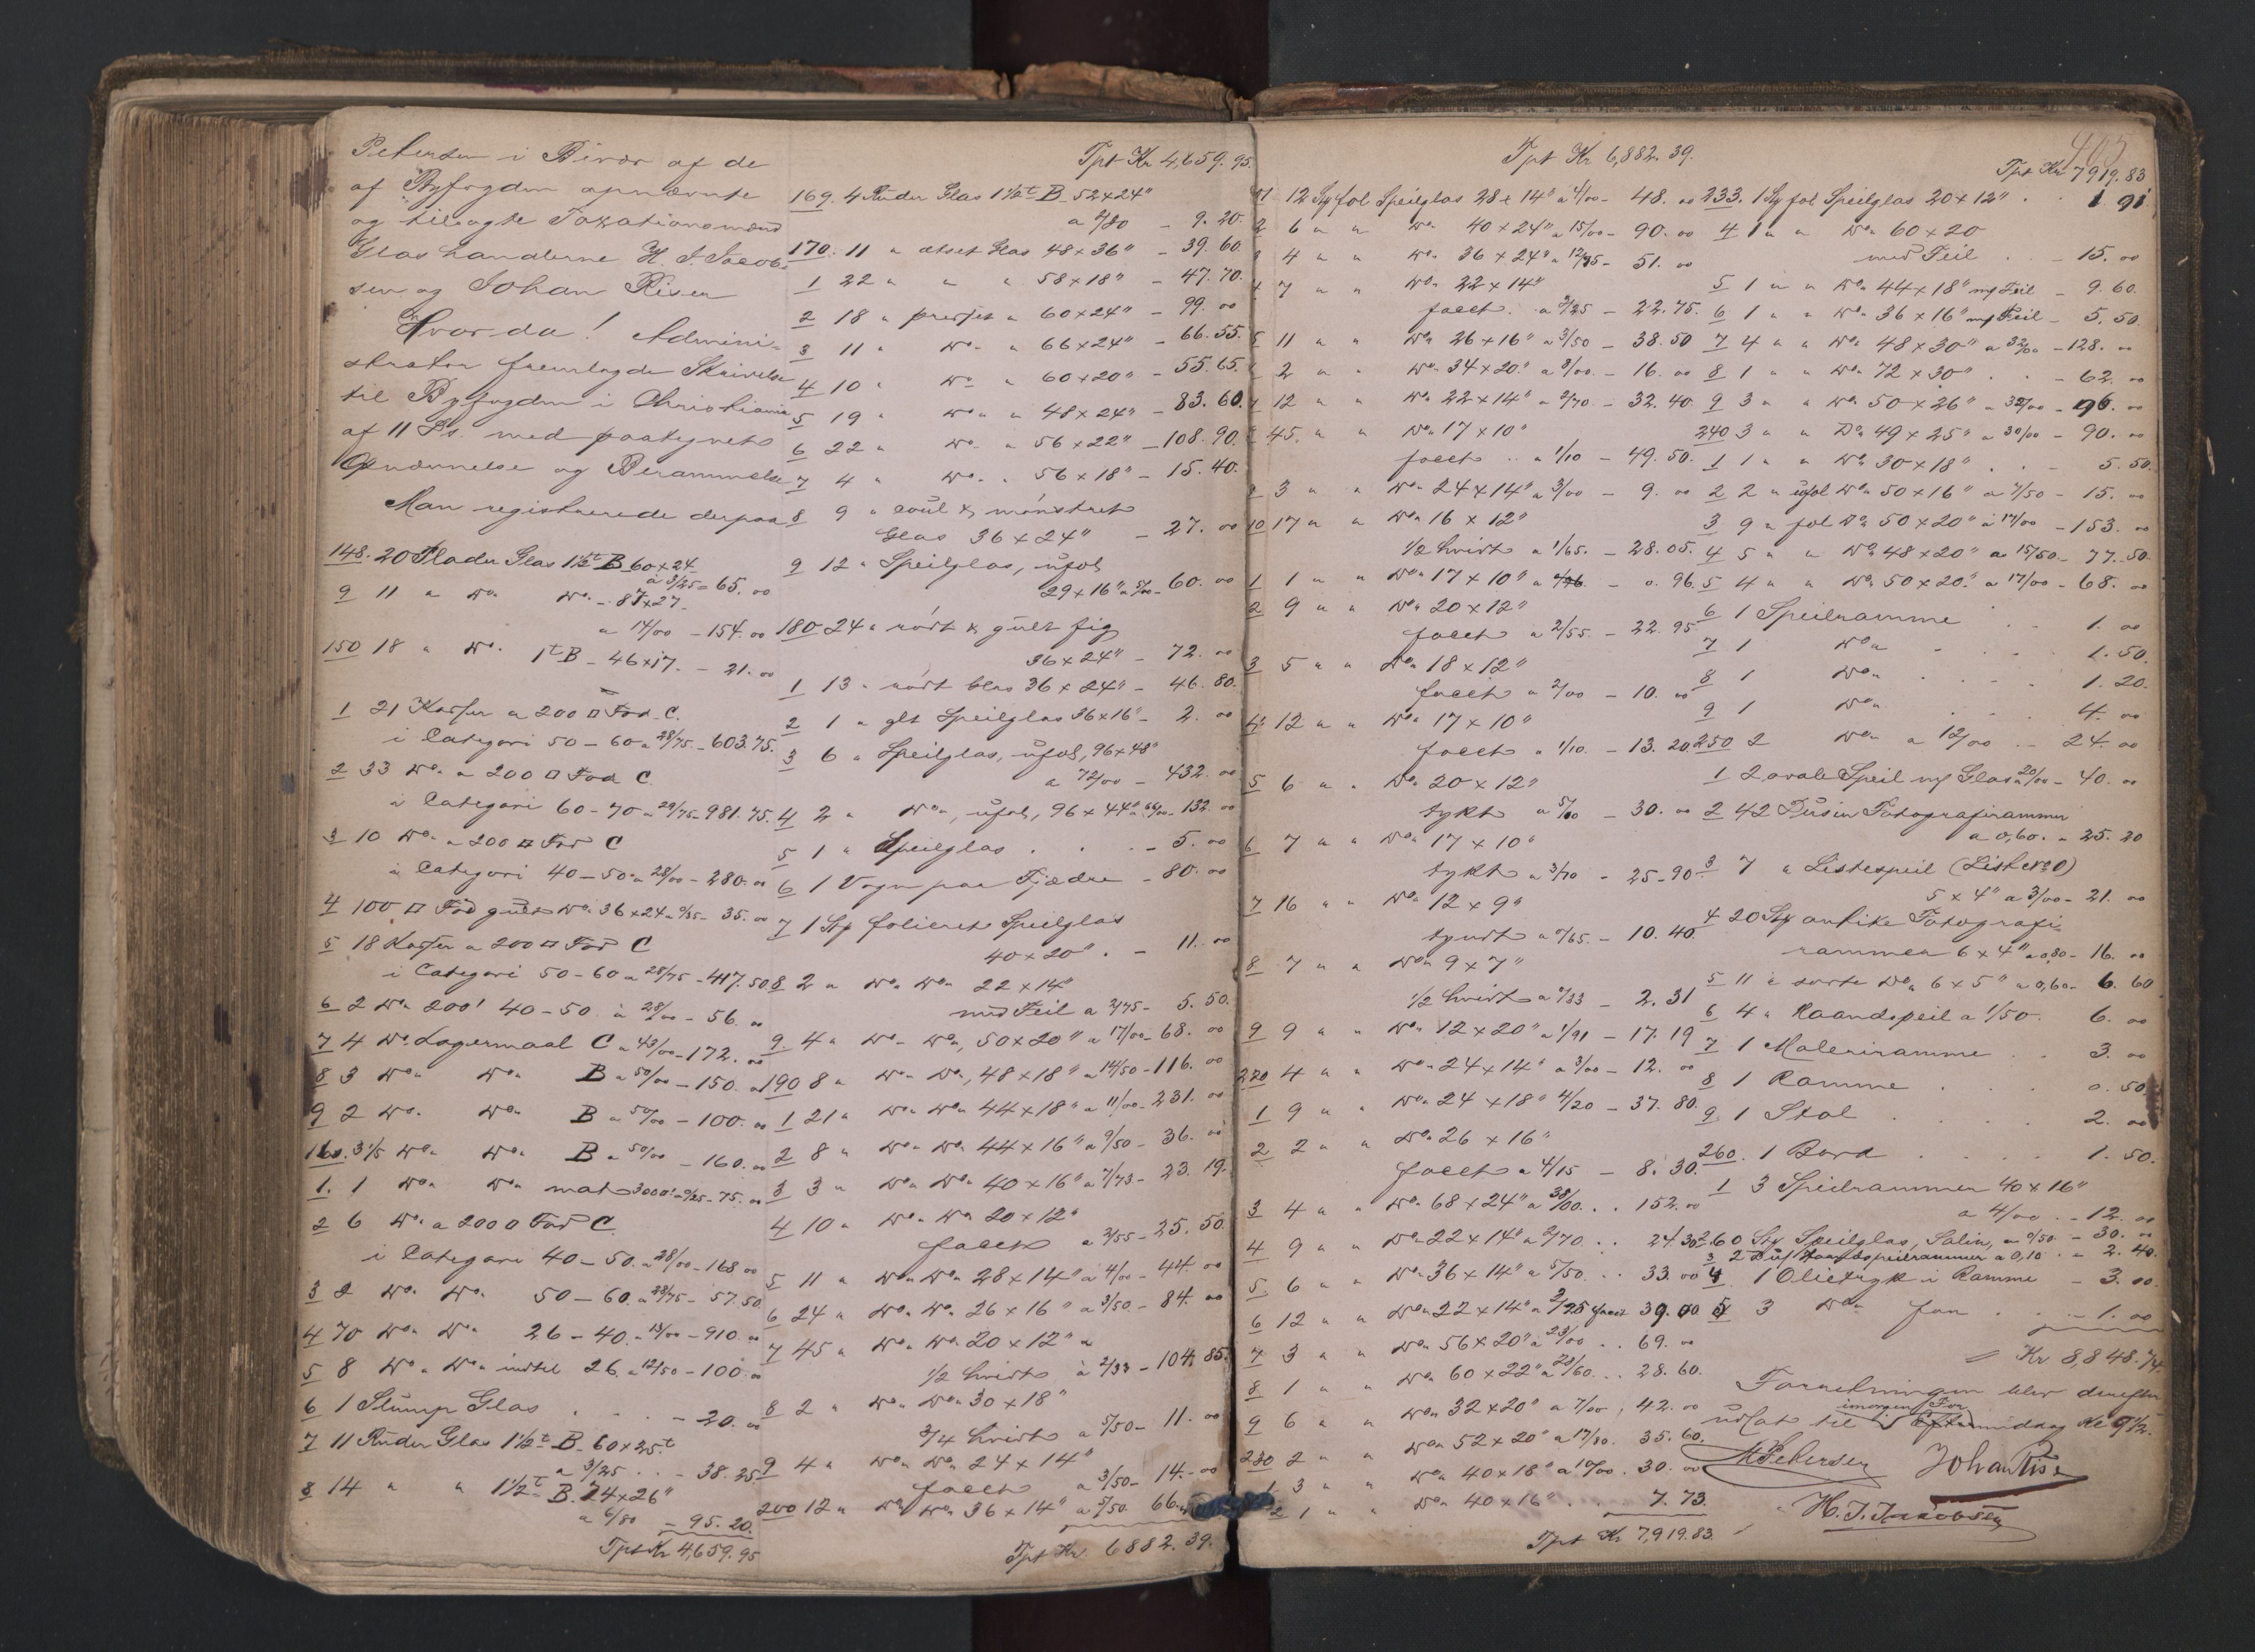 Petersen i Bivær af de
af Byfogden opnævnte
og tilsagte Taxationsmænd
Glashandlerne H. J. Jacob-
sen og Johan Riser
Hvorda! Admini-
strator fremlagde Skrivelse
til Byfogden i Christiania
af 11 Ds. med paategnet
Opnævnelse og Berammelse
Man registrerede derpaa
148. 20 Plader Glas 1½t B 60×24
a 3/25 = 65. 00
9 11 " Do. Do. - 87×27.
a 14/00 - 154. 00
150 18 " Do. 1t B - 46×17. - 21. 00
1 21 Kasser a 200 □ Fod C.
i Categori 50-60 a 28/75 - 603.75.
2 33 Do. a 200 □ Fod C.
i Categori 60-70 a 29/75 - 981.75.
3 10 Do. a 200 □ Fod C
i Categori 40-50 a 28/00 - 280. 00
4 100 □ Fod gult Do. 36×24 a 0/35 - 35. 00
5 18 Kasser a 200 □ Fod C
i Categori 50-60 a 28/75 - 417.50
6 2 Do. 200' 40-50 à 28/00 - 56. 00
7 4 Do. Lagermaal C a 43/00 - 172. 00
8 3 Do. Do. B a 50/00 - 150. 00
9 2 Do. Do. B a 50/00 - 100. 00
160. 3 1/5 Do. Do. B a 50/00 - 160. 00
1. 1 Do. Do. mat 3000' - 0/25 - 75. 00
2 6 Do. a 200 □ Fod C.
i Categori 40-50. a 28/00 - 168 00
3 2 Do. Do. 50-60. a 28/75 - 57.50.
4 70 Do. Do. 26-40. a 13/00 - 910. 00
5 8 Do. Do. indtil 26. a 12/50 - 100. 00
6 1 Slump Glas . . . - 20. 00
7 11 Ruder Glas 1½t B. 60×25"
a 3/25 . . - 38.25
8 14 " " 1½t B. 74×26"
a 6/80 - 95.20.
Tpt Kr 4,659.95
Tpt Kr 4,659.95.
169. 4 Ruder Glas 1½t B 52×24"
a 2/30 - 9.20.
170. 11 " ætset Glas 48×36" - 39.60.
1 22 " " " 58×18" - 47.70.
2 18 " presset " 60×24" - 99. 00
3 11 " Do. " 66×24" - 66.55.
4 10 " Do " 60×20" - 55.65.
5 19 " Do. " 48×24" - 83.60.
6 22 " Do. " 56×22" - 108.90.
7 4 " Do. " 56×18" - 15.40.
8 9 " coul & mønstret
Glas 36×24" - 27. 00
9 12 " Speilglas, ufol
29×16" a 5/00 - 60. 00
180 24 " rødt & gult fig
36×24" - 72. 00
1 13 " rødt blaa 36×24" - 46.80.
2 1 " glt Speilglas 36×16" - 2. 00
3 6 " Speilglas, ufol, 96×48"
a 72/00 - 432. 00
4 2 " Do., ufol, 96×44" a 66/00 - 132. 00
5 1 " Speilglas . . . - 5. 00
6 1 Vogn paa Fjædre - 80. 00
7 1 Stk folieret Speilglas
40×20" . - 11. 00
8 2 " Do. Do. 22×14"
med Feil a 2/75 - 5.50.
9. 4 " Do. Do., 50×20" a 17/00 - 68. 00
190 8 " Do. Do., 48×18" a 14/50 - 116. 00
1 21 " Do. Do. 44×18" a 11/00 - 231. 00
2 8 " Do. Do. 44×16" a 9/50 - 36. 00
3 3 " Do. Do. 40×16" a 7/73 - 23.19.
4 10 " Do. Do 20×12"
facet a 2/55 - 25.50.
5 11 " Do. Do. 28×14" à 4/00 - 44. 00
6 24 " Do. Do. 26×16" a 3/50 - 84. 00
7 45 " Do. Do. 20×12" a
½ hvidt à 2/33 - 104.85.
8 2 " Do. Do. 30×18"
¾ hvidt a 5/50 - 11. 00
9 4 " Do. Do. 24×14"
facet a 3/50 - 14. 00
200 12 " Do. Do. 36×14" a 5/50. 66. 00
Tpt Kr. 6882.39.
Tpt Kr. 6,882.39.
1 12 Stk fol Speilglas 28×14" a 4/00 - 48. 00
2 6 " " Do. 40×24" a 15/00 - 90. 00
3 4 " " Do. 36×24" a 12/75 - 51. 00
4 7 " " Do. 22×14"
facet. a 3/25 - 22.75.
5 11 " " Do. 26×16" a 3/50 - 38.50
2 " " Do. 34×20" a 8/00. - 16. 00
12 " " Do. 22×14" a 2/70 - 32.40.
45. " " Do. 17×10"
facet . . a 1/10 - 49.50.
3 " " Do. 24×14" a 3/00 - 9. 00
10 17 " " Do. 16×12"
½ hvidt a 1/65. - 28.05.
1 1 " " Do. 17×10" a 0/96 - 0.96.
2 9 " " Do. 20×12"
facet a 2/55. - 22.95
3 5 " " Do. 18×12"
facet a 2/00 - 10. 00
4 12 " " Do. 17×10"
facet a 1/10. - 13.20
5 6 " " Do. 20×12"
tykt a 5/00 - 30. 00
6 7 " " Do. 17×10"
tykt a 3/70 - 25.90
7 16 " " Do. 12×9"
tyndt a 0/65. - 10.40.
8 7 " " Do. 9×7"
½ hvidt a 0/33 - 2.31
9 9 " " Do. 12×20" a 1/91 - 17.19
220 4 " " Do. 24×14" a 3/00 - 12. 00
1 9 " " Do. 24×18" 4/20 - 37.80.
2 2 " " Do. 26×16"
facet a 4/15 - 8.30.
3 4 " " Do. 68×24" a 38/00. . . 152. 00
4 9 " " Do. 22×14" a 2/70 . . 24.30
5. 6 " " Do. 36×14" a 5/50. . . 33. 00
6 12 " " Do. 22×14" a 3/25 facet 39.00
7 3 " " Do. 56×20" a 23/00 . . 69. 00
8 1 " " Do. 60×22" a 28/60. . . 28.60.
9 6 " " Do. 32×20" a 7/00 , 42. 00
230 2 " " Do. 52×20" a 17/80. 35.60.
1 3 " " Do. 40×18" a 10/00. 30. 00
2 1 " " Do. 40×16" . . . 7.73.
Tpt Kr 7,919.83.
465
Tpt Kr 7919.83
233. 1 Stk fol Speilglas 20×12" . . 1.91
4 1 " " Do. 60×20
med Feil . . - 15. 00
5 1 " " Do. 44×18" m/ Feil - 9.60.
6 1 " " Do. 36×16" m/ Feil - 5.50.
7 4 " " Do. 48×30" a 32/00 - 128. 00
8 1 " " Do. 72×30" . . - 62. 00
9 3 " " Do. 50×26" a 32/00 - 96. 00
240 3 " " Do. 49×25" a 30/00 - 90. 00
1 1 " " Do. 30×18" . . - 5.50.
2 2 " ufol Do. 50×16" a 7/50 - 15. 00
3 9 " fol Do. 50×20" à 17/00 - 153. 00
4 5 " " Do. 48×20" a 15/50 - 77.50.
5 4 " " Do. 50×20" a 17/00 - 68. 00
6 1 Speilramme . . . 1. 00
7 1 Do. . . . . 1.50.
8 1 Do. . . . . 1.20.
9 1 Do. . . . . 4. 00
250 2 Do. a 12/00 . - 24. 00
1 2 ovale Speil m/ Glas a 20/00 - 40. 00
2 42 Dusin Fotografirammer
a 0,60. - 25.20
3 7 " Listespeil
5×4" a 3/00 - 21. 00
4 20 Stk antike Fotografi-
rammer 6×4" a 0,80 - 16. 00
5 11 " sorte Do. 6×5" a 0,60 - 6.60
6 4 " Haandspeil a 1/50. 6. 00
7 1 Maleriramme . . 3. 00
8 1 Ramme . . . 0.50.
9. 1 Stol . . . . 2. 00
260. 1 Bord . . . . 1.50.
1 3 Speilrammer 40×16"
a 4/00 . - 12. 00
2. 60 Stk Speilglas, Salin, a 0/50 - 30. 00
3 2 Dus Haandspeilrammer a 0,10 . - 2.40.
4 1 Olietryk i Ramme - 3.00.
5 3 Do. for . . . - 1. 00
Kr 8,848.74.
Forretningen blev derefter
udsat til imorgen Formiddag Kl 9½.
M Petersen Johan Riser
H. J. Jacobsen